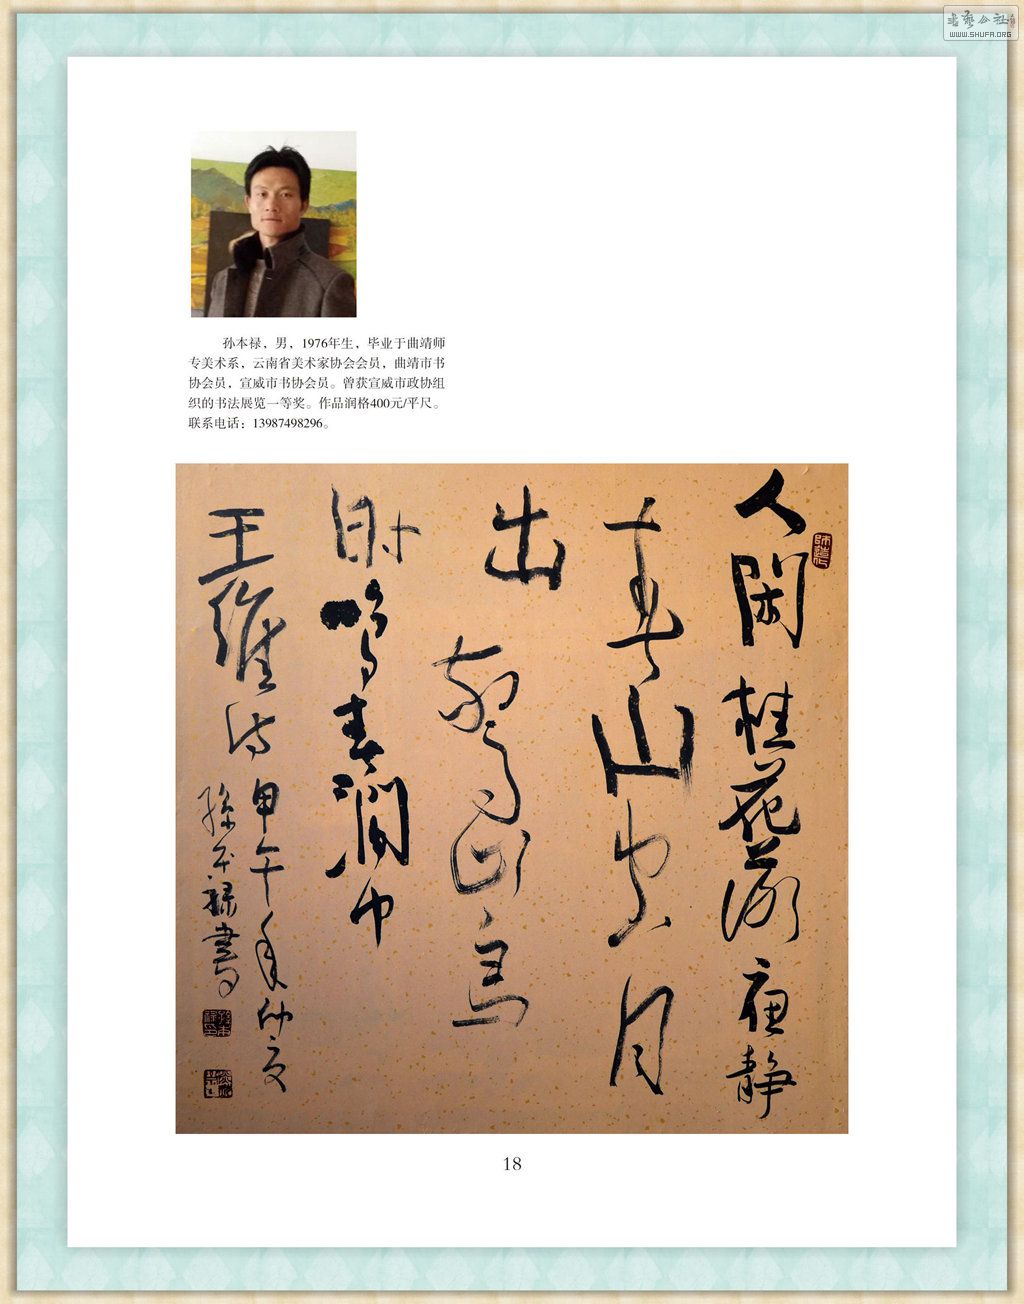 書藝公社
WWW.SHUFA.ORG
孙本禄，男，1976年生，毕业于曲靖师
专美术系，云南省美术家协会会员，曲靖市书
协会员，宣威市书协会员。曾获宣威市政协组
织的书法展览一等奖。作品润格400元/平尺。
联系电话：13987498296。
師造化
人閑桂花落夜静
春山空月
出驚山鳥
时鳴春澗中
王維诗
甲午年仲夏
孫本禄書
18